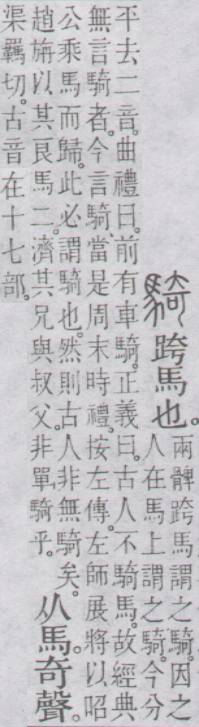 騎 跨馬也。
兩髀跨馬謂之騎。因之
人在馬上謂之騎。今分
平去二音。曲禮曰。前有車騎。正義曰。古人不騎馬。故經典
無言騎者。今言騎。當是周末時禮。按左傳。左師展將以昭
公乘馬而歸。此必謂騎也。然則古人非無騎矣。
趙旃以其良馬二。濟其兄與叔父。非單騎乎。
从馬奇聲。
渠羈切。古音在十七部。